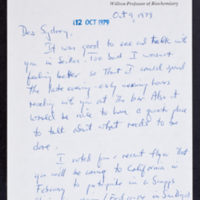 Willson Professor of Biochemistry
Oct 9, 1979
12 OCT 1979
Dear Sydney,
It was good to see and talk with
you in . Too bad I wasn't
feeling better so that I could spend
the late evening early morning hours
with you at the bar. Also it
would be nice to have a quiet place
to talk about what needs to be
done.
I noted from a recent flyer that
you will be coming to California in
February to participate in a